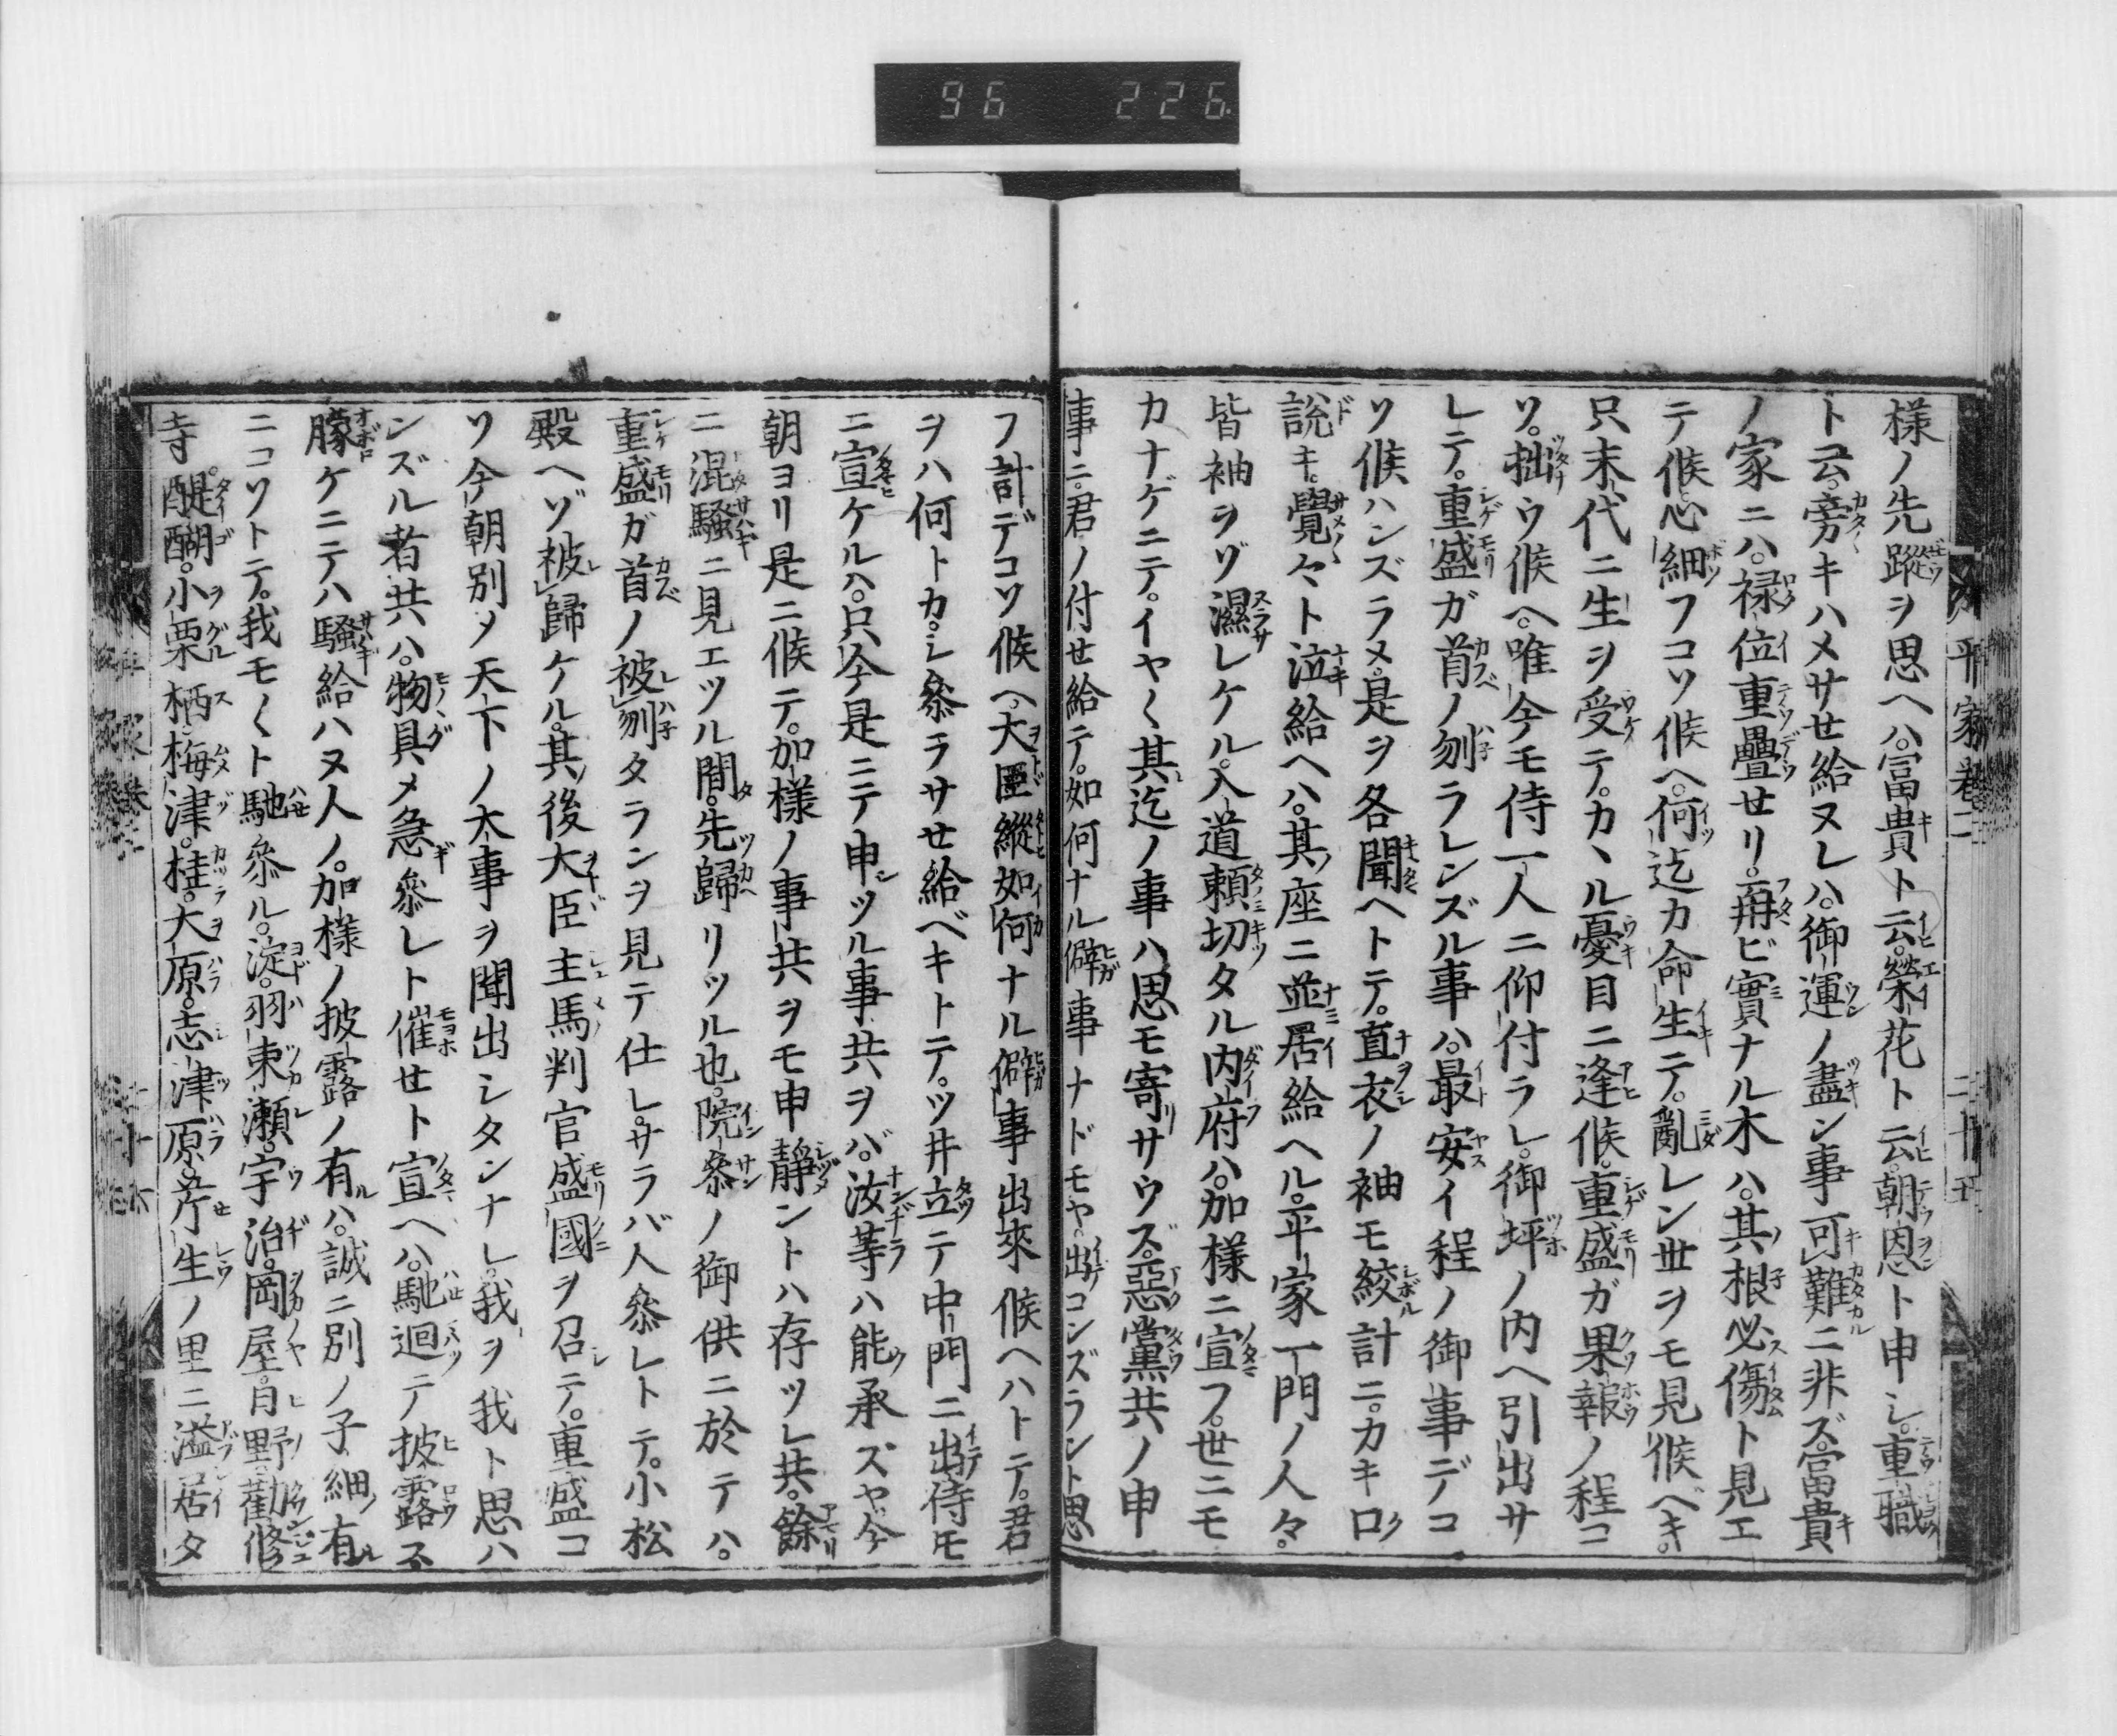 96 226
様ノ先蹤ヲ思ヘハ富貴ト云榮花ト云朝恩ト申シ重職
ト云旁キハメサせ給ヌレハ御運ノ盡ン事可難ニ非ズ富貴
ノ家ニハ禄位重疊せリ再ビ實ナル木ハ其根必傷ト見エ
テ候心細フコソ候ヘ何迄カ命生テ亂レン世ヲモ見候ベキ
只末代ニ生ヲ受テカヽル憂目ニ逢候重盛ガ果報ノ程コ
ソ拙ウ候ヘ唯今モ侍一人ニ仰付ラレ御坪ノ内ヘ引出サ
レテ重盛ガ首ノ刎ラレンズル事ハ最安イ程ノ御事デコ
ソ候ハンズラメ是ヲ各聞ヘトテ直衣ノ袖モ絞計ニカキロ
説キ覺々ト泣給ヘハ其座ニ並居給ヘル平家一門ノ人々
皆袖ヲゾ濕レケル入道頼切タル内府ハ加様ニ宣フ世ニモ
カナゲニテイヤ〱其迄ノ事ハ思モ寄サウズ惡黨共ノ申
事ニ君ノ付せ給テ如何ナル僻事ナドモヤ出コンズラント思
フ計デコソ候ヘ大臣縱如何ナル僻事出來候ヘハトテ君
ヲハ何トカシ參ラサせ給ベキトテツ井立テ中門ニ出侍モ
ニ宣ケルハ只今是ニテ申ツル事共ヲバ汝等ハ能承ズヤ今
朝ヨリ是ニ候テ加様ノ事共ヲモ申靜ントハ存ツレ共餘
ニ混騒ニ見エツル間先歸リツル也院參ノ御供ニ於テハ
重盛ガ首ノ被刎タランヲ見テ仕レサラバ人參レトテ小松
殿ヘゾ被歸ケル其後大臣主馬判官盛國ヲ召テ重盛コ
ソ今朝別ノ天下ノ大事ヲ聞出シタンナレ我ヲ我ト思ハ
ンズル者共ハ物具メ急參レト催せト宣ヘハ馳迴テ披露ス
朦ケニテハ騒給ハヌ人ノ加様ノ披露ノ有ハ誠ニ別ノ子細有
ニコソトテ我モ〱ト馳參ル淀羽束瀬宇治岡屋日野勸修
寺醍醐小栗栖梅津桂大原志津原芹生ノ里ニ溢居タ
平家巻二 二十五